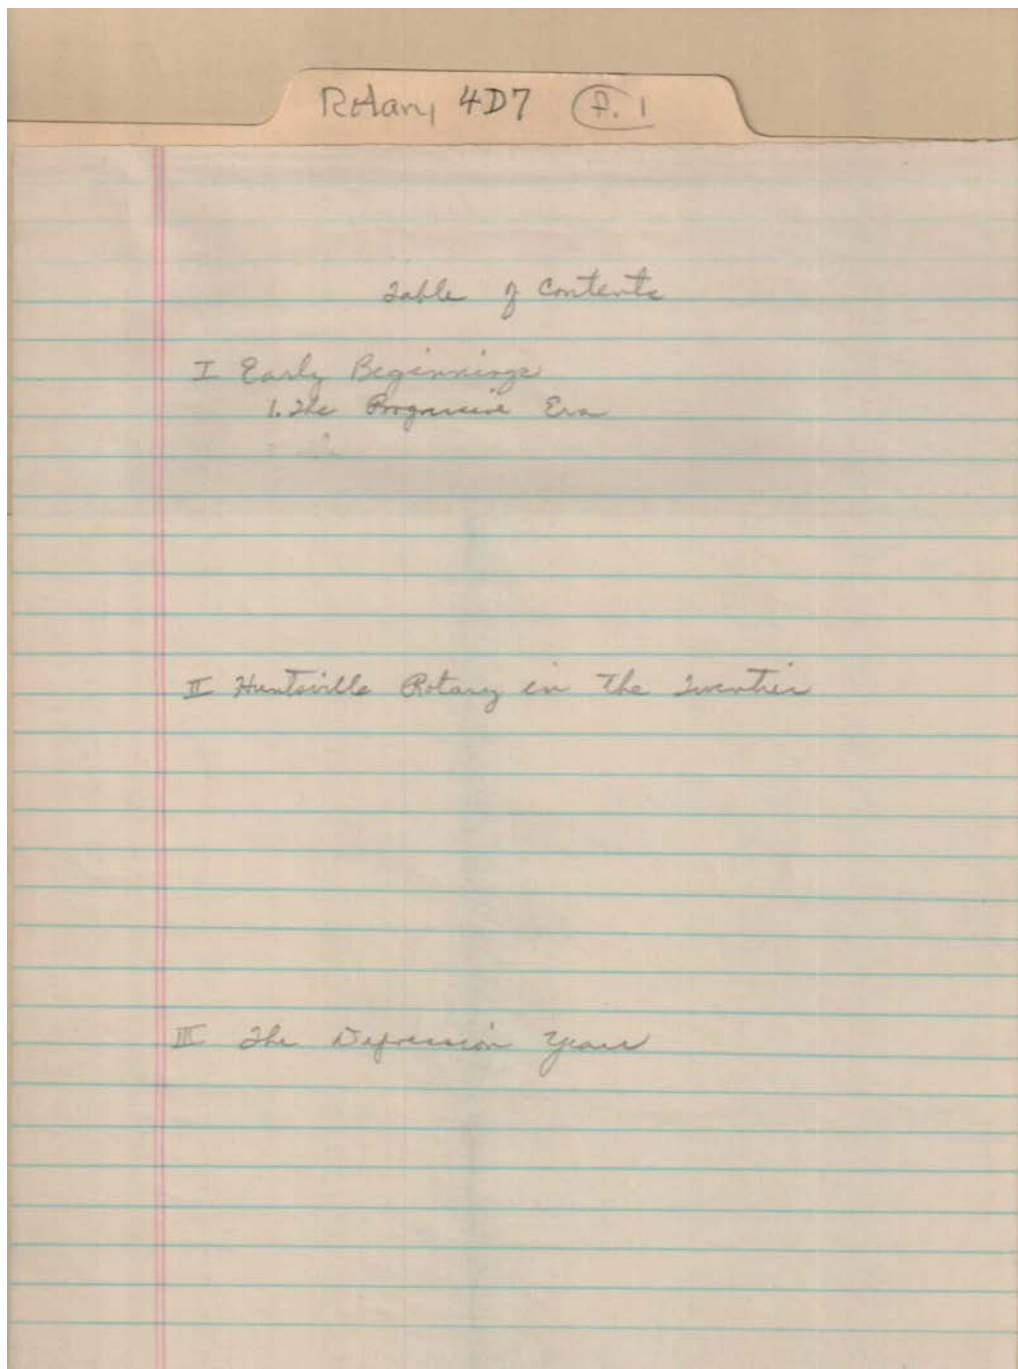 Rotary 4D7 P. 1
Table of Contents
I Early Beginnings
1. The Progressive Era
II Huntsville Rotary in The Twenties
III The Depression Years